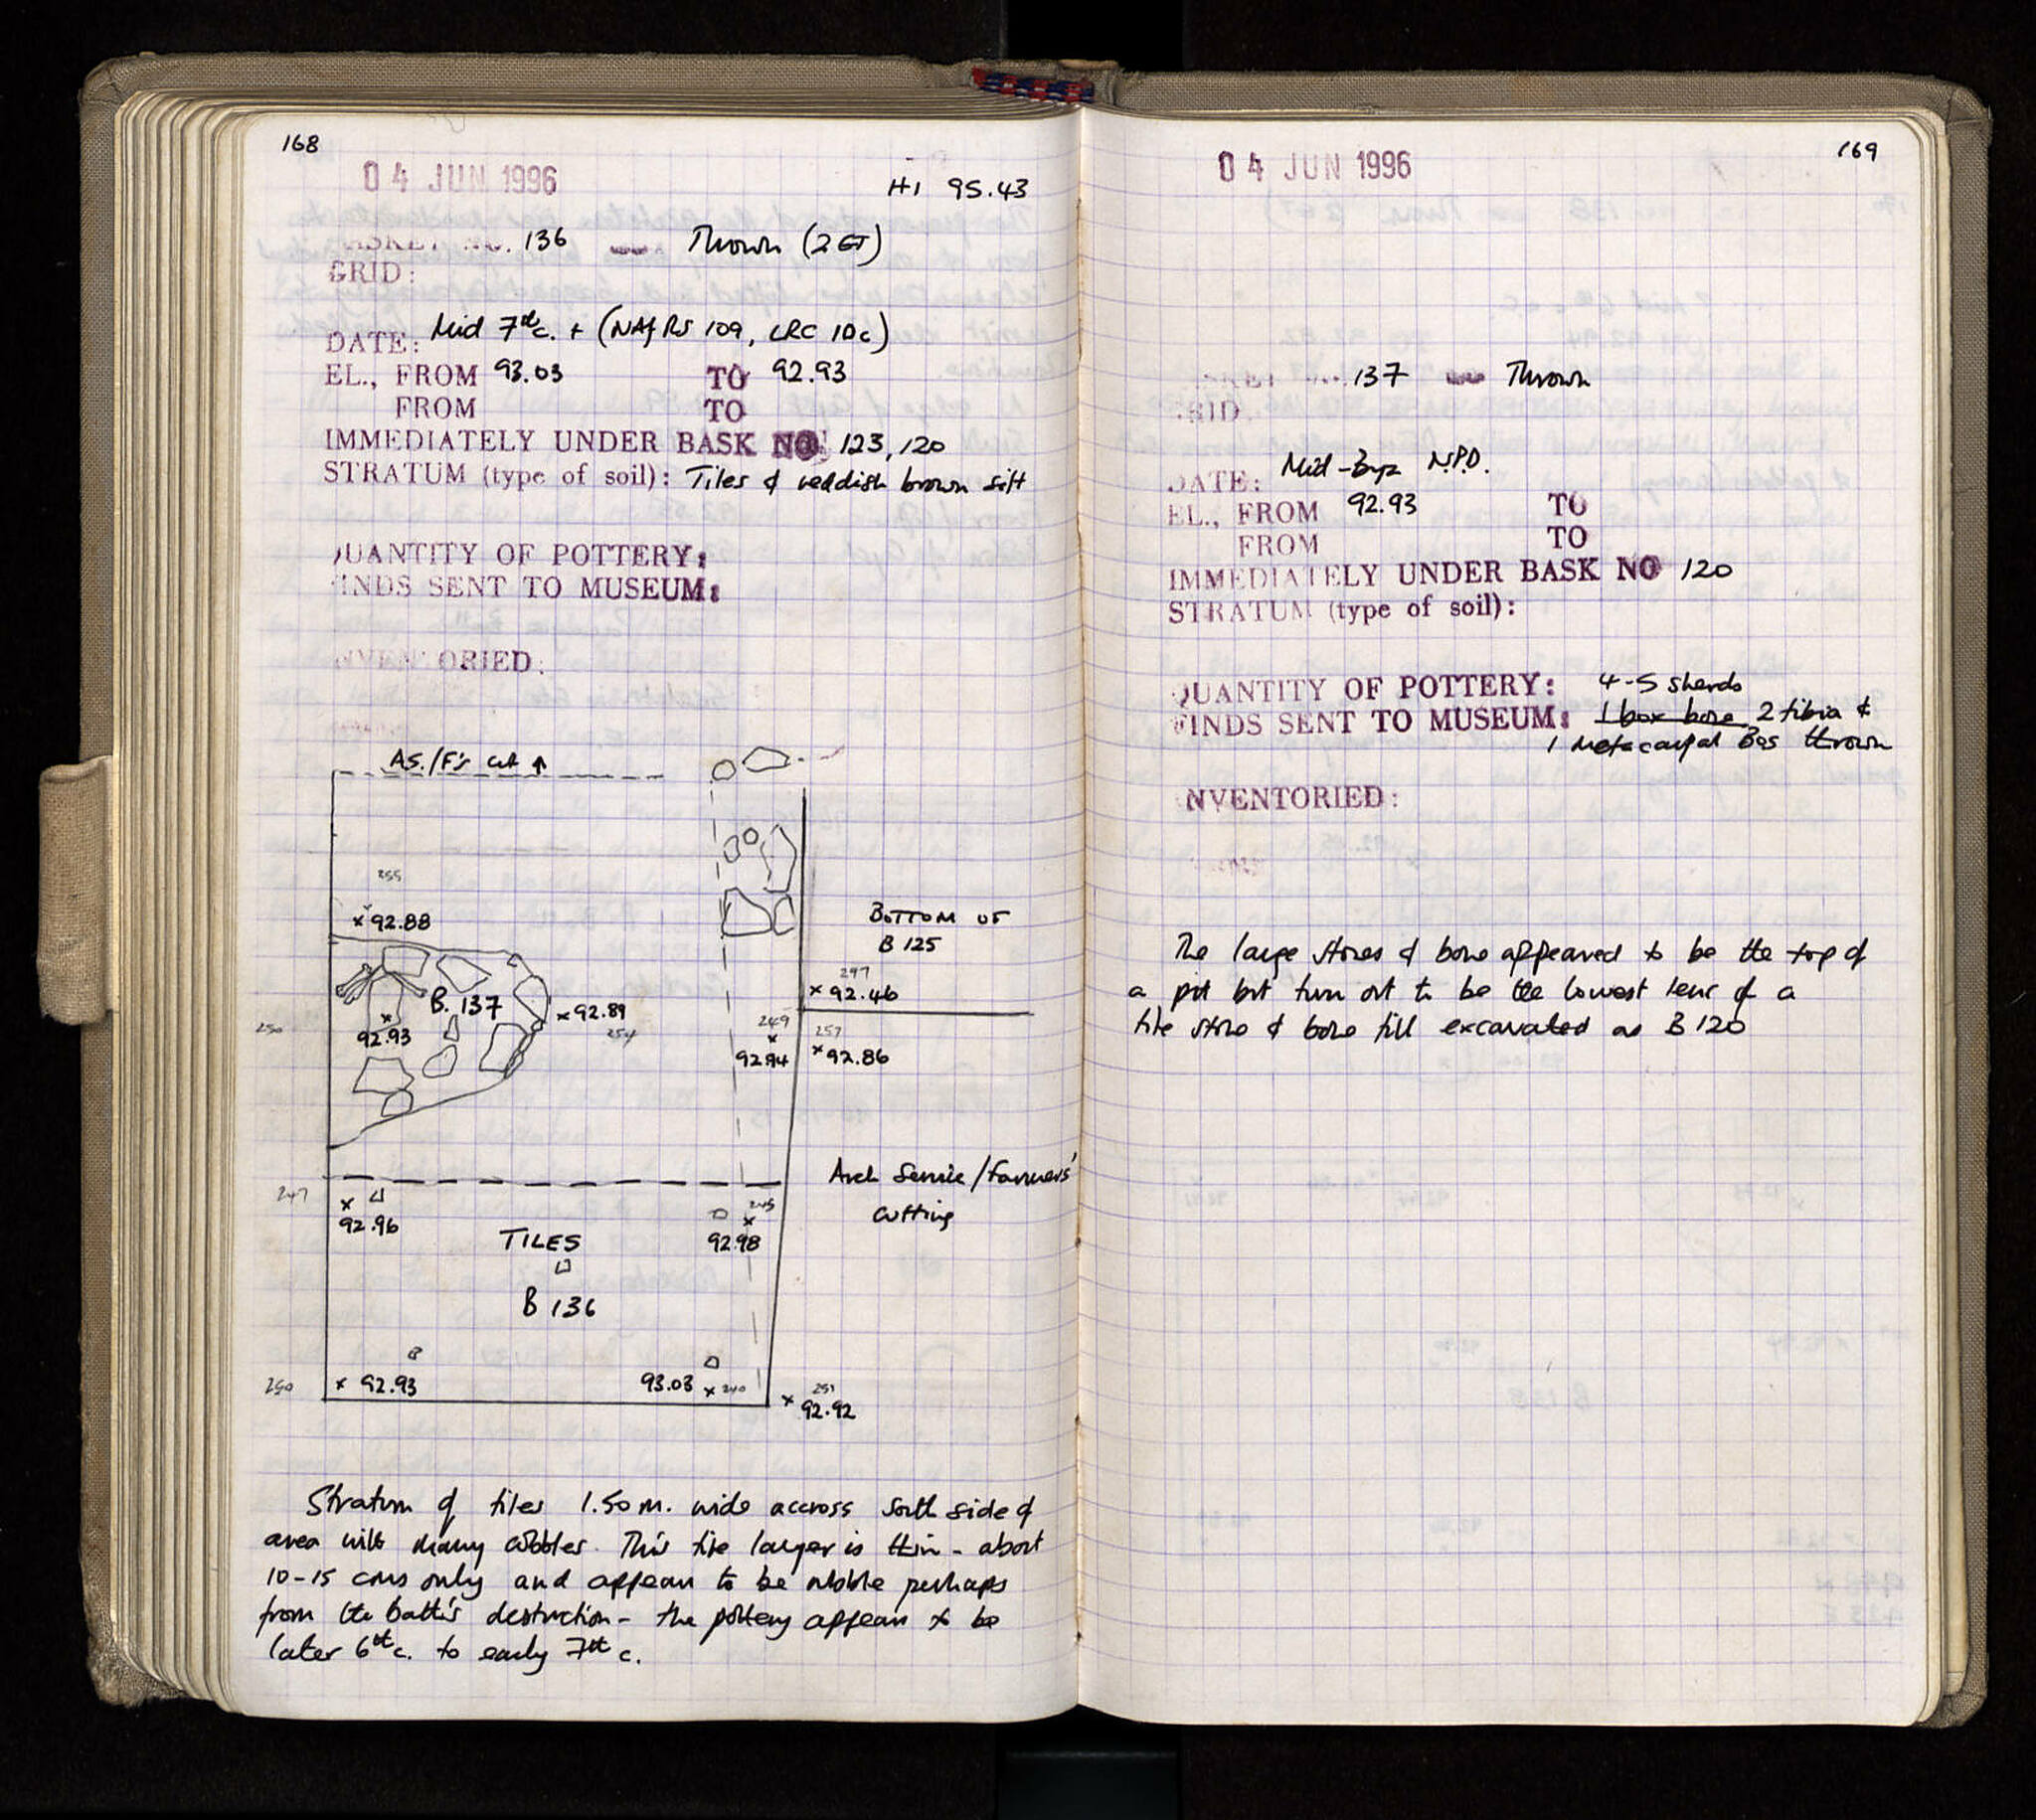 168
04 JUN 1996
HI 95.43
BASKET NO. 136 Thrown (2 GT)
GRID:
DATE: Mid 7th c. + (NAfRS 109, LRC 10c)
EL., FROM 93.03 TO 92.93
FROM TO
IMMEDIATELY UNDER BASK NO 123, 120
STRATUM (type of soil): Tiles & reddish brown silt
QUANTITY OF POTTERY:
FINDS SENT TO MUSEUM:
INVENTORIED:
A.S./F's cut ↑
255
x 92.88
B. 137
x 92.93
x 92.89
254
250
BOTTOM OF
B 125
297
x 92.46
249
x
92.94
257
x 92.86
Arch Service/Farmers'
cutting
247
x
92.96
245
x
92.98
TILES
B 136
250
x 92.93
93.03 x 240
251
x 92.92
Stratum of tiles 1.50 m. wide accross South side of
area with many cobbles. This tile layer is thin - about
10-15 cms only and appears to be rubble perhaps
from the bath's destruction - the pottery appears to be
later 6th c. to early 7th c.
169
04 JUN 1996
BASKET NO. 137 Thrown
GRID.
DATE: Mid-Byz N.P.D.
EL., FROM 92.93 TO
FROM TO
IMMEDIATELY UNDER BASK NO 120
STRATUM (type of soil):
QUANTITY OF POTTERY: 4-5 sherds
FINDS SENT TO MUSEUM: 1 box bone 2 tibia &
1 metacarpal Bos thrown
INVENTORIED:
The large stones & bone appeared to be the top of
a pit but turn out to be the lowest lens of a
tile stone & bone fill excavated as B 120